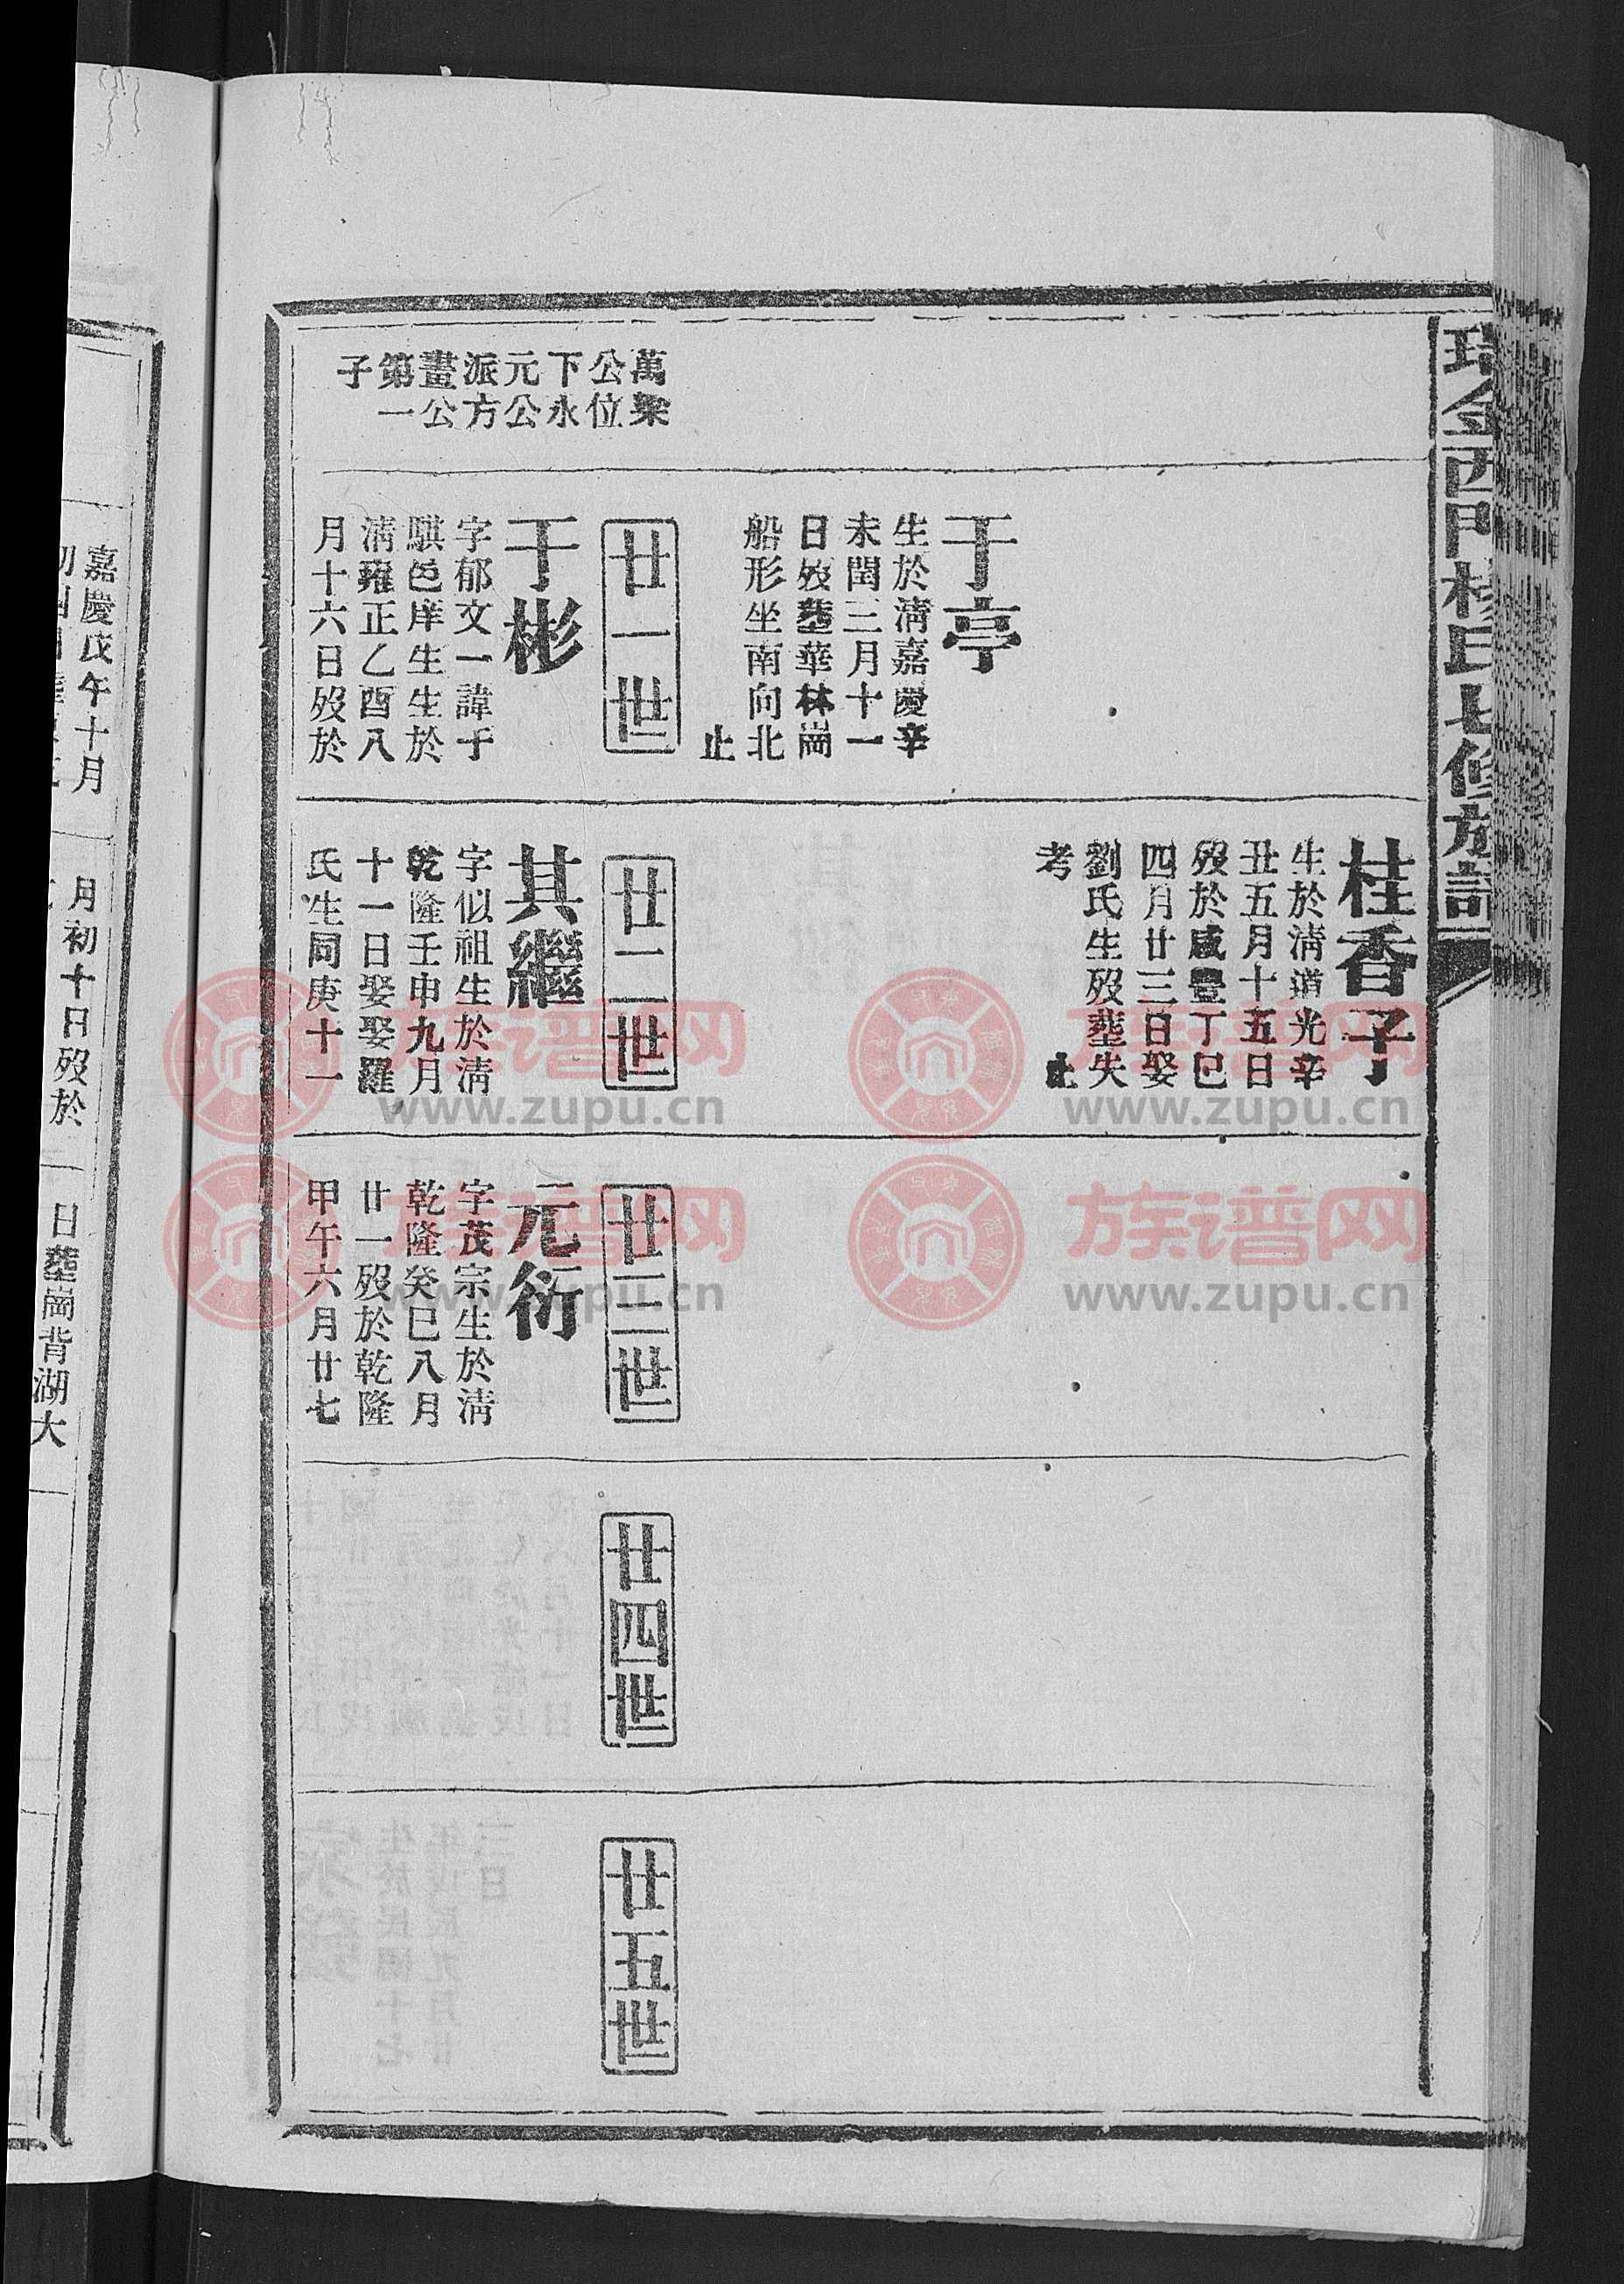 瑞金西門楊氏七修族譜
桂香子
生於淸道光辛
丑五月十五日
歿於咸豐丁巳
四月廿三日娶
劉氏生歿塟失
考
止
于亭
生於淸嘉慶辛
未閏三月十一
日歿塟華林崗
船形坐南向北
止
萬樂
公位
下永
元公
派方
畫公
第一
子
廿一世
于彬
字郁文一諱于
騏邑庠生生於
淸雍正乙酉八
月十六日歿於
廿二世
其繼
字似祖生於淸
乾隆壬申九月
十一日娶娶羅
氏生同庚十一
廿三世
元衍
字茂宗生於淸
乾隆癸巳八月
廿一歿於乾隆
甲午六月廿七
廿四世
廿五世
嘉慶戊午十月
月初十日歿於
日塟崗背湖大
族谱网
www.zupu.cn
族谱网
www.zupu.cn
族谱网
www.zupu.cn
族谱网
www.zupu.cn